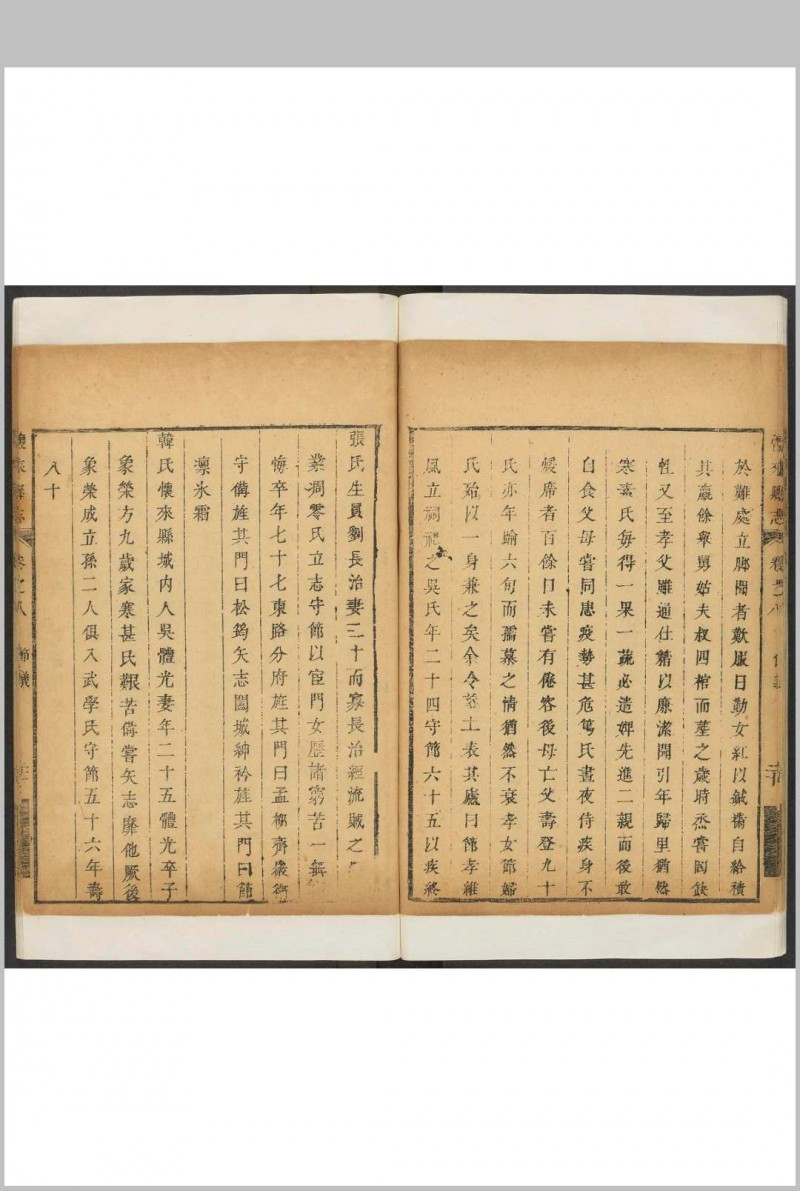 於難處立腳聞者歎服日勤女紅以鍼黹自給積
其贏餘舉舅姑夫叔四棺而塟之歲時烝嘗罔缺
性又至孝父雖通仕籍以廉潔聞引年歸里猶然
寒素氏每得一果一蔬必遣婢先進二親而後敢
自食父母嘗同患疫勢甚危篤氏晝夜侍疾身不
煖席者百餘日未嘗有倦容後母亡父壽登九十
氏亦年踰六旬而孺慕之情猶然不衰孝女節婦
氏殆以一身兼之矣余令茲土表其廬曰節孝維
風立祠祀之吳氏年二十四守節六十五以疾終
張氏生員劉長治妻三十而寡長治經流賊之
業凋零氏立志守節以宦門女歷諸窮苦一無
悔卒年七十七東路分府旌其門曰孟
守備旌其門曰松筠矢志闔城紳衿旌其門曰節
凛氷霜
韓氏懷來縣城内人吳體光妻年二十五體光卒子
象榮方九歲家寒甚氏艱苦備嘗矢志靡他厥後
象榮成立孫二人俱入武學氏守節五十六年壽
八十
懷來縣志 卷之八